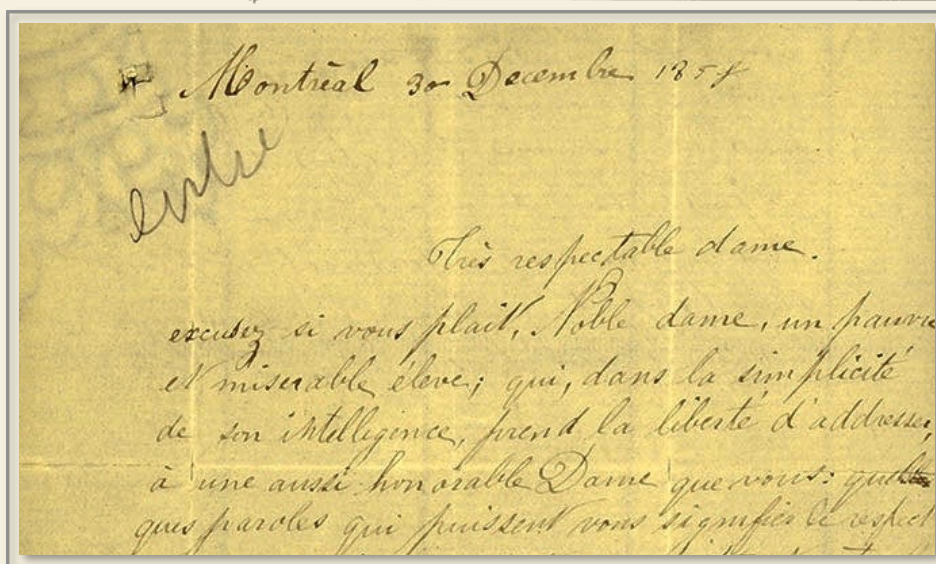 Montréal 30 Decembre 185
Très respectable dame.
excusez si vous plait, Noble dame, un pauvre
et miserable éleve; qui, dans la simplicité
de son intelligence, prend la liberté d'addresser,
à une aussi honorable Dame que vous: quel
ques paroles qui puissent vous signifier le respect